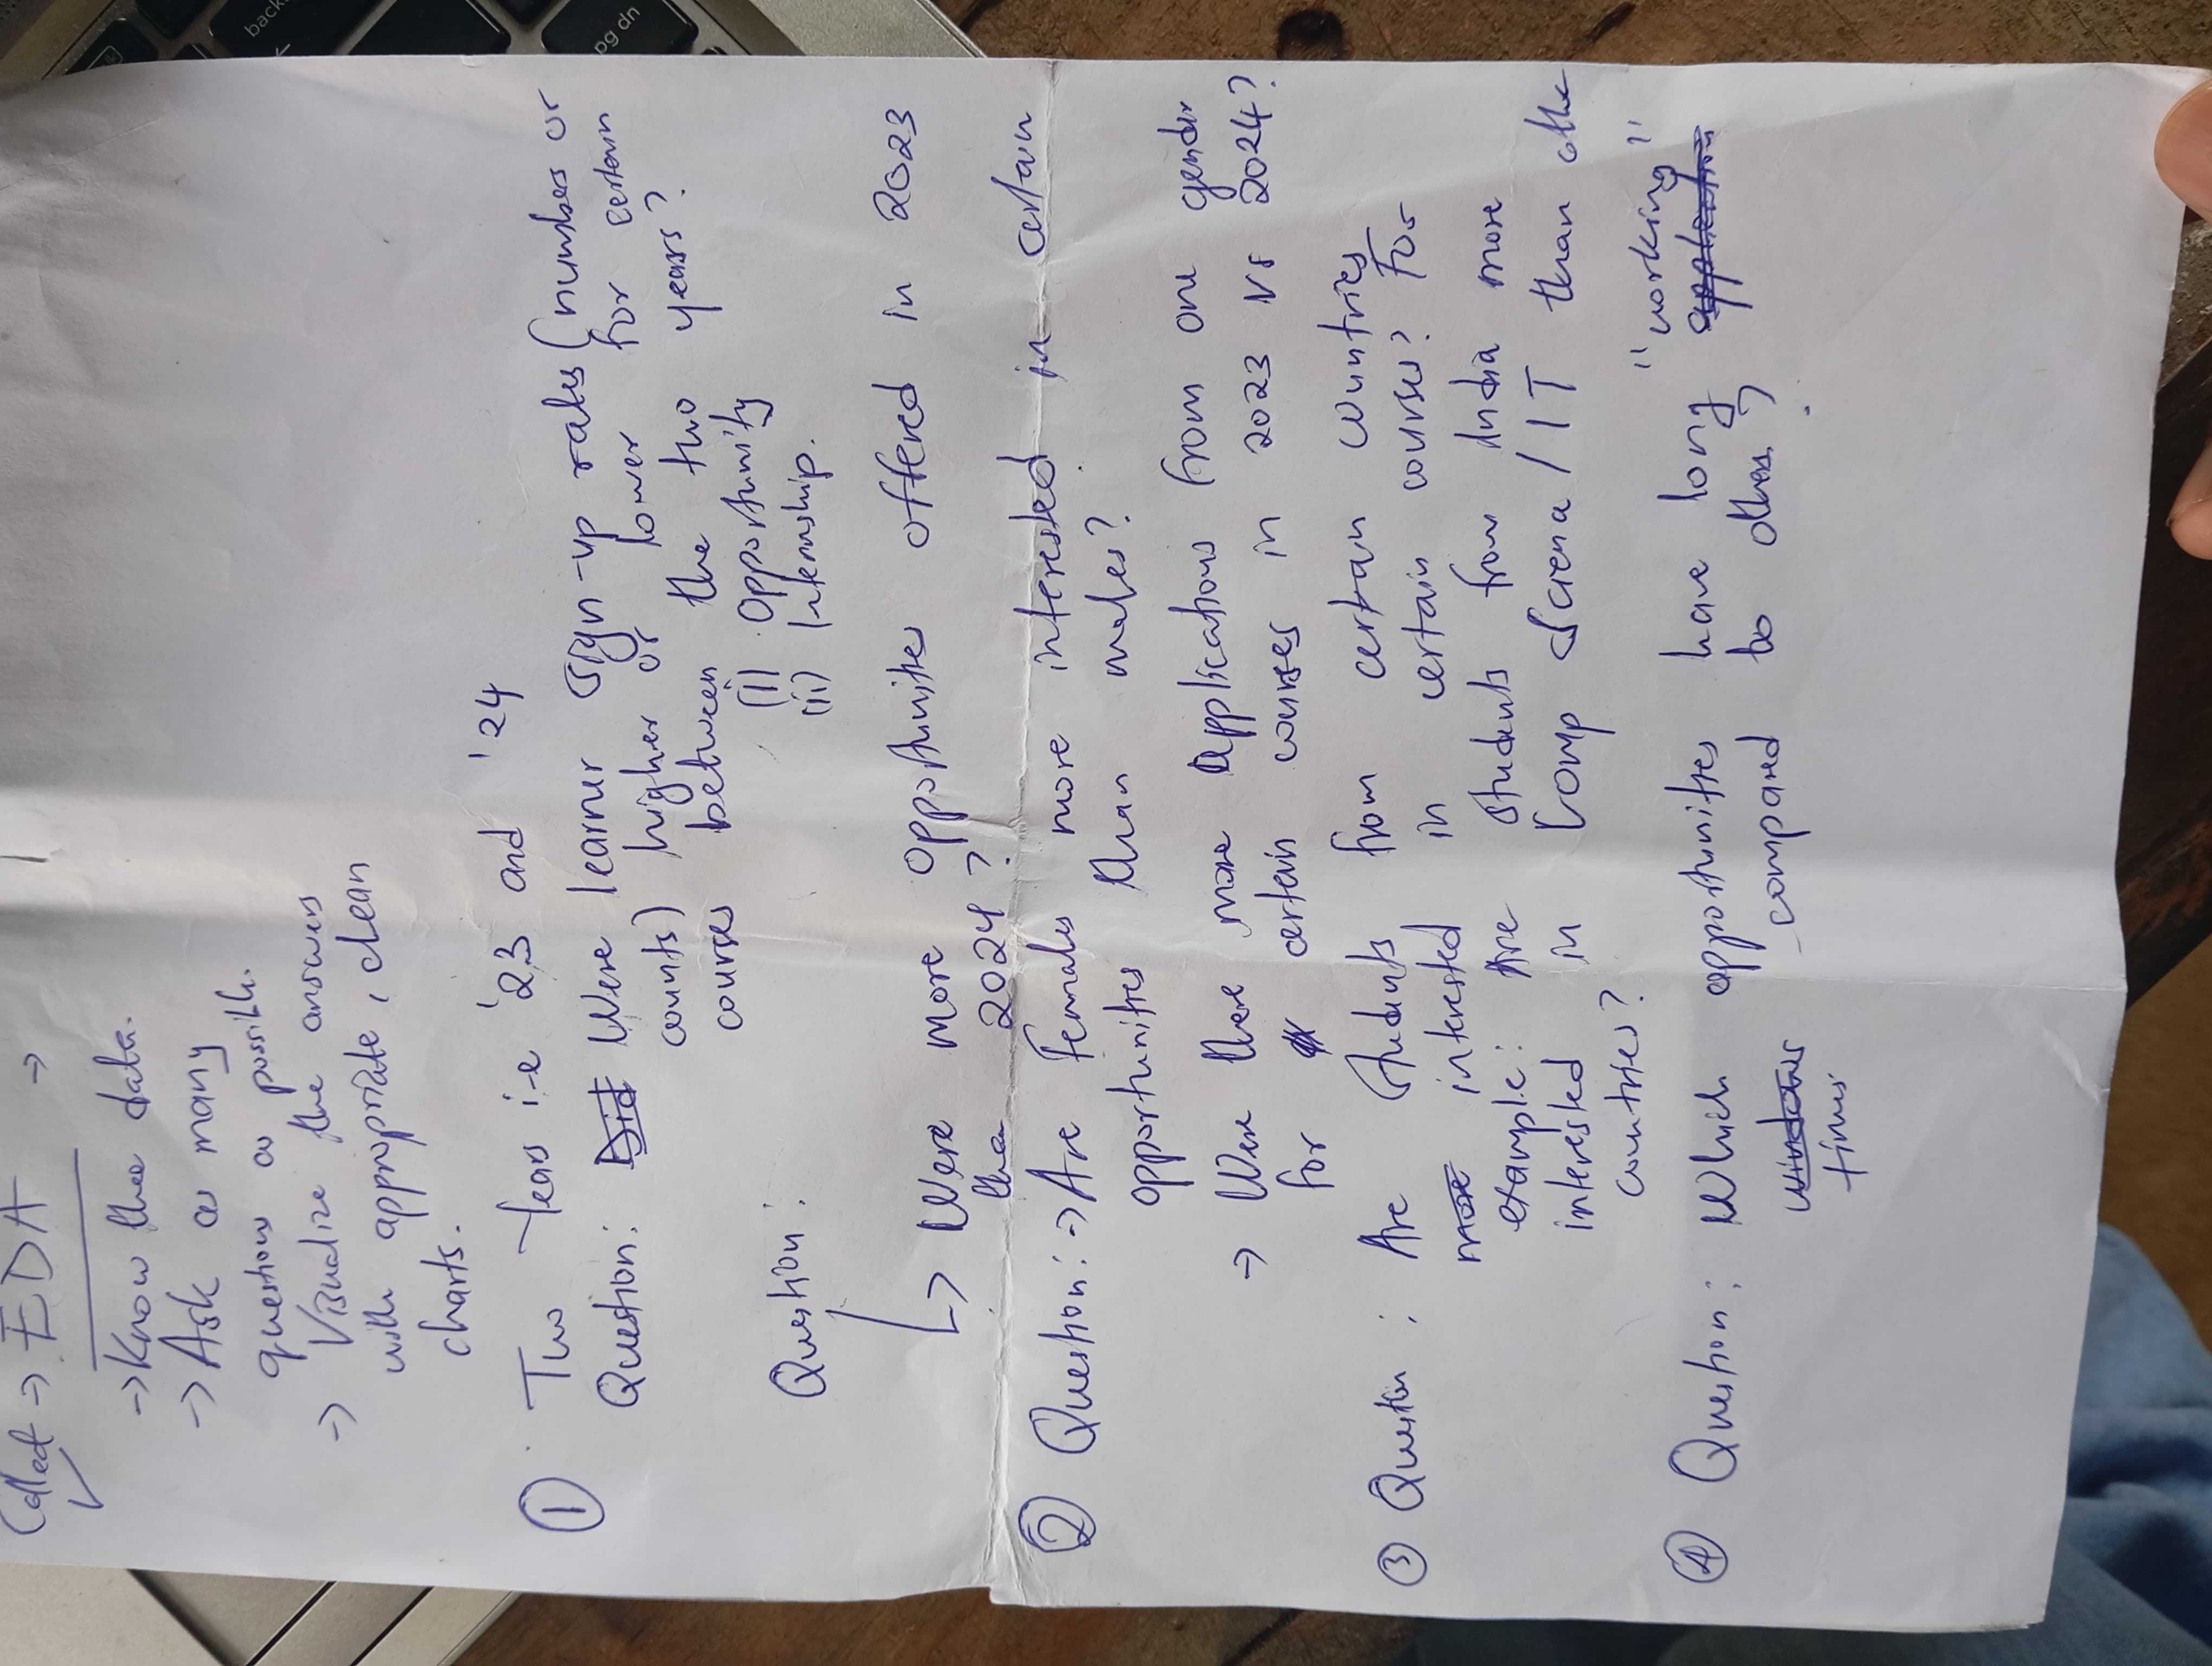 Collect → EDA →
✓
→ Know thee data.
→ Ask as many
questions as possible.
→ Visualize the answers
with appropriate, clean
charts.
① Two Years i-e '23 and '24
Question: Did Were learner sign-up rates (numbers or
counts) higher or lower for certain
courses between the two years?
(i) Opportunity
(ii) Internship.
Question:
↳ Were more opportunities offered in 2023
than 2024?
② Question: → Are Females more interested in certain
opportunities than males?
→ Were there more Applications from one gender
for certain courses in 2023 vs 2024?
③ Question : Are Students from certain countries
more interested in certain courses? For
example: Are Students from India more
interested in Comp Science / IT than other
countries?
④ Question: Which opportunities have long "working"
application
windows compared to others?
times
back
pg dn